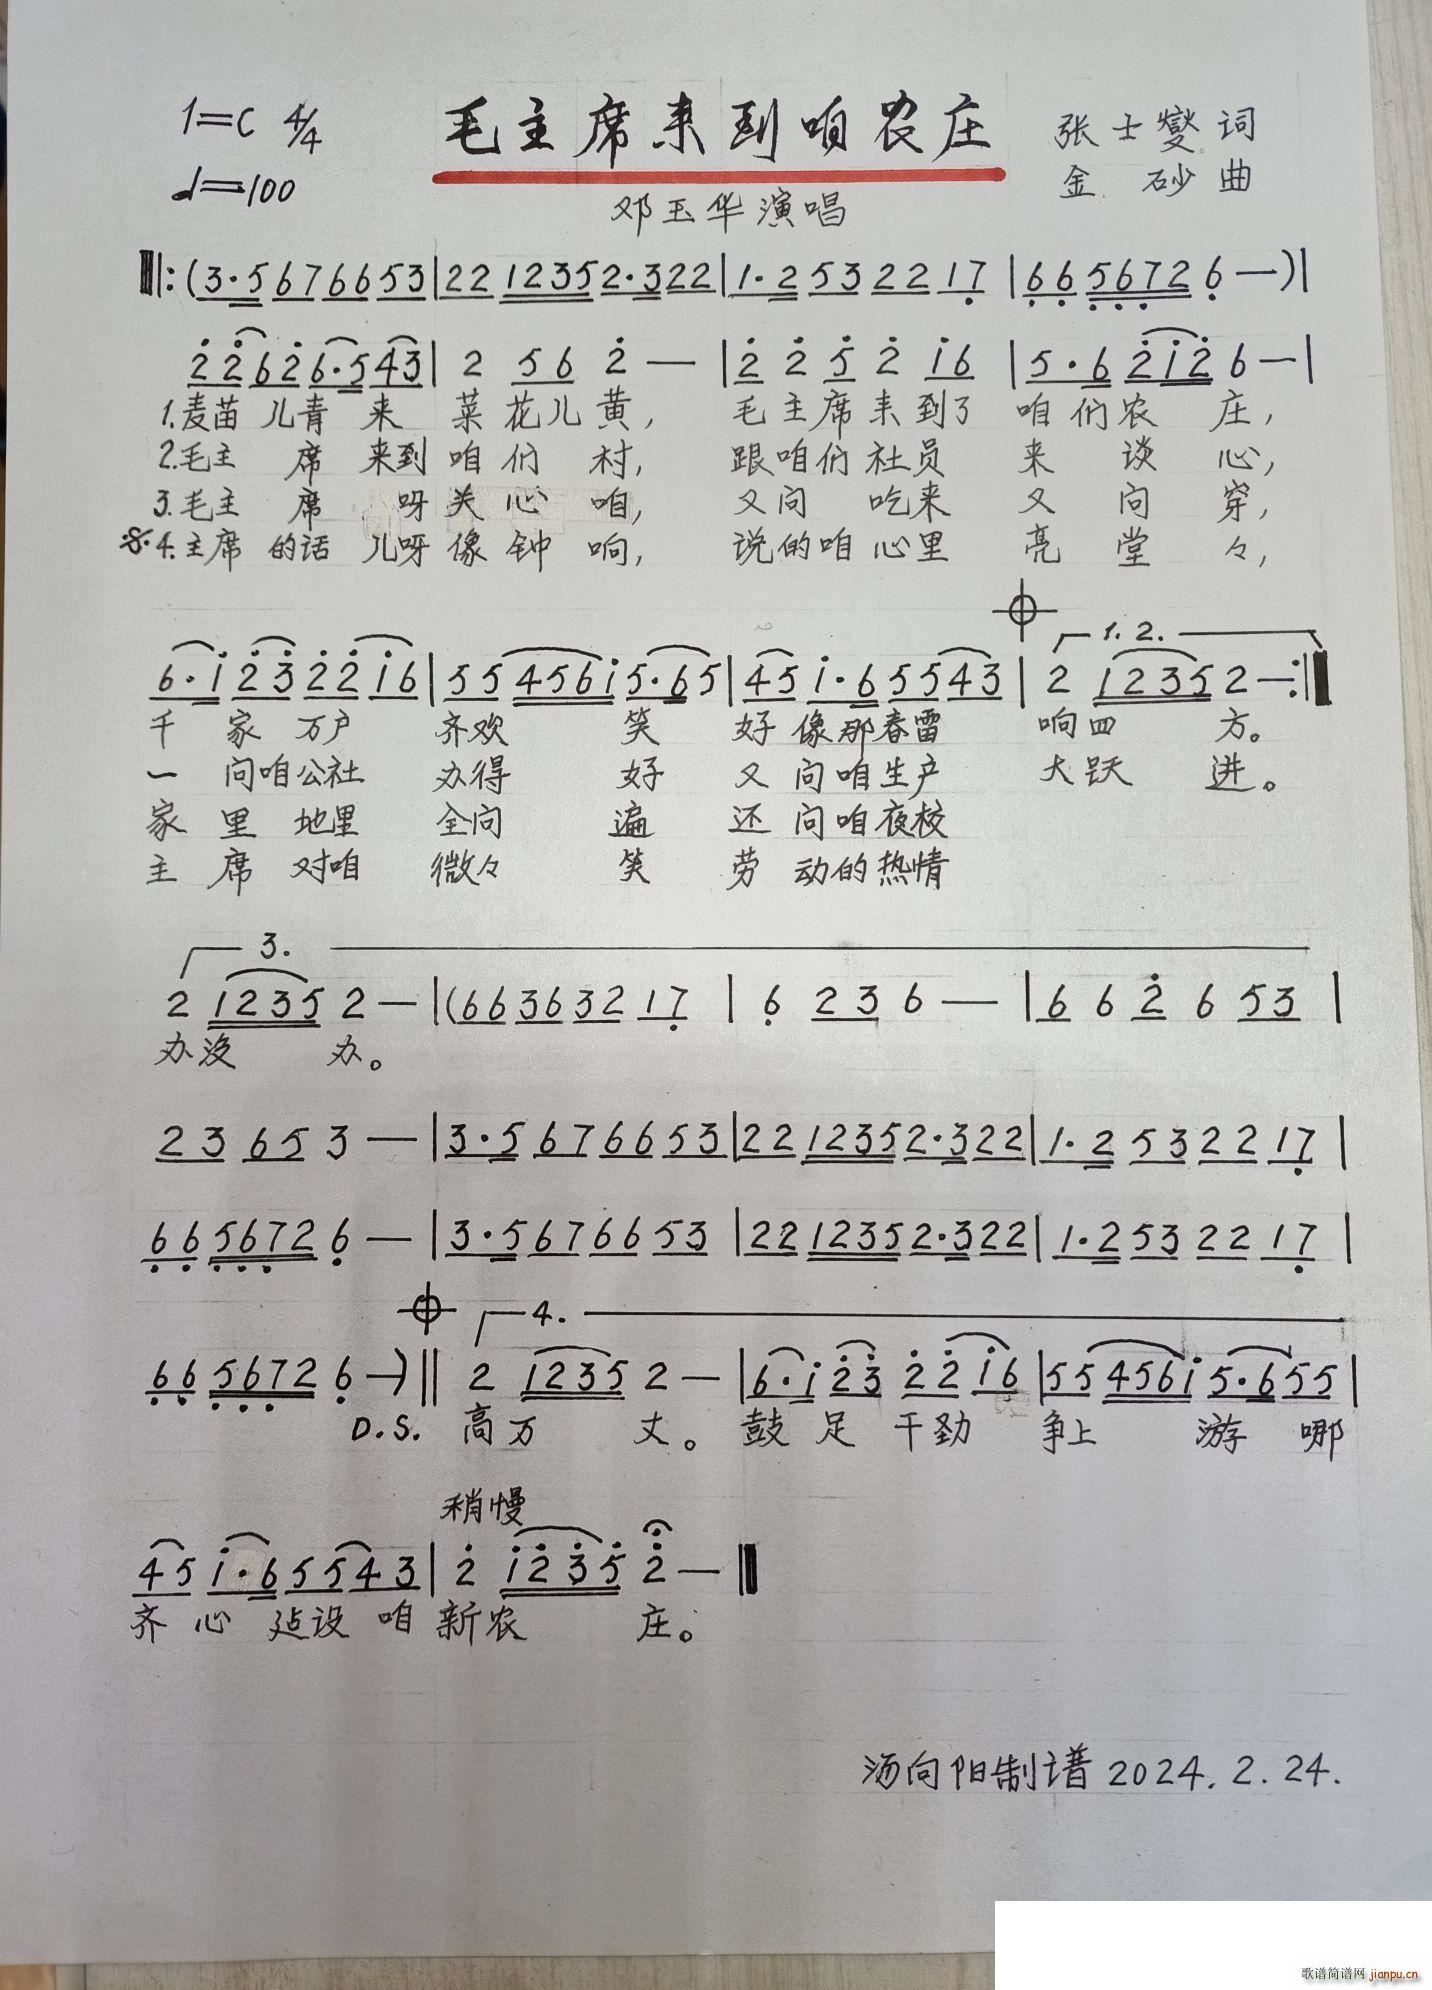 1=C 4/4 毛主席来到咱农庄 张士燮词
♩=100 金 砂曲
邓玉华演唱
‖:(3·5 67 66 53|22 1235 2·3 22|1·2 53 22 17|66 5672 6 —)|
22 62 6·5 43|2 56 2 —|2 2 5 2 16|5·6 212 6 —|
1.麦苗儿青来 菜花儿黄, 毛主席来到了 咱们农庄,
2.毛主席来到 咱们村, 跟咱们社员 来谈心,
3.毛主席呀 关心咱, 又问吃来 又问穿,
※4.主席的话儿呀 像钟响, 说的咱心里 亮堂々,
1.2.
6·1 23 22 16|55 4561 5·65|45 1·6 55 43|2 1235 2 —:‖
千家万户 齐欢笑 好像那春雷 响四方。
一问咱公社 办得好 又问咱生产 大跃进。
家里地里 全问遍 还问咱夜校
主席对咱 微々笑 劳动的热情
3.
2 1235 2 —|(66 36 32 17|6 23 6 —|6 6 2 6 53|
办没办。
23 65 3 —|3·5 67 66 53|22 1235 2·3 22|1·2 53 22 17|
66 5672 6 —|3·5 67 66 53|22 1235 2·3 22|1·2 53 22 17|
4.
66 5672 6 —)‖2 1235 2 —|6·1 23 22 16|55 4561 5·6 55|
D.S. 高万丈。 鼓足干劲 争上游哪
稍慢
45 1·6 55 43|2 1235 2 —‖
齐心建设咱 新农庄。
汤向阳制谱 2024.2.24.
歌谱简谱网 jianpu.cn